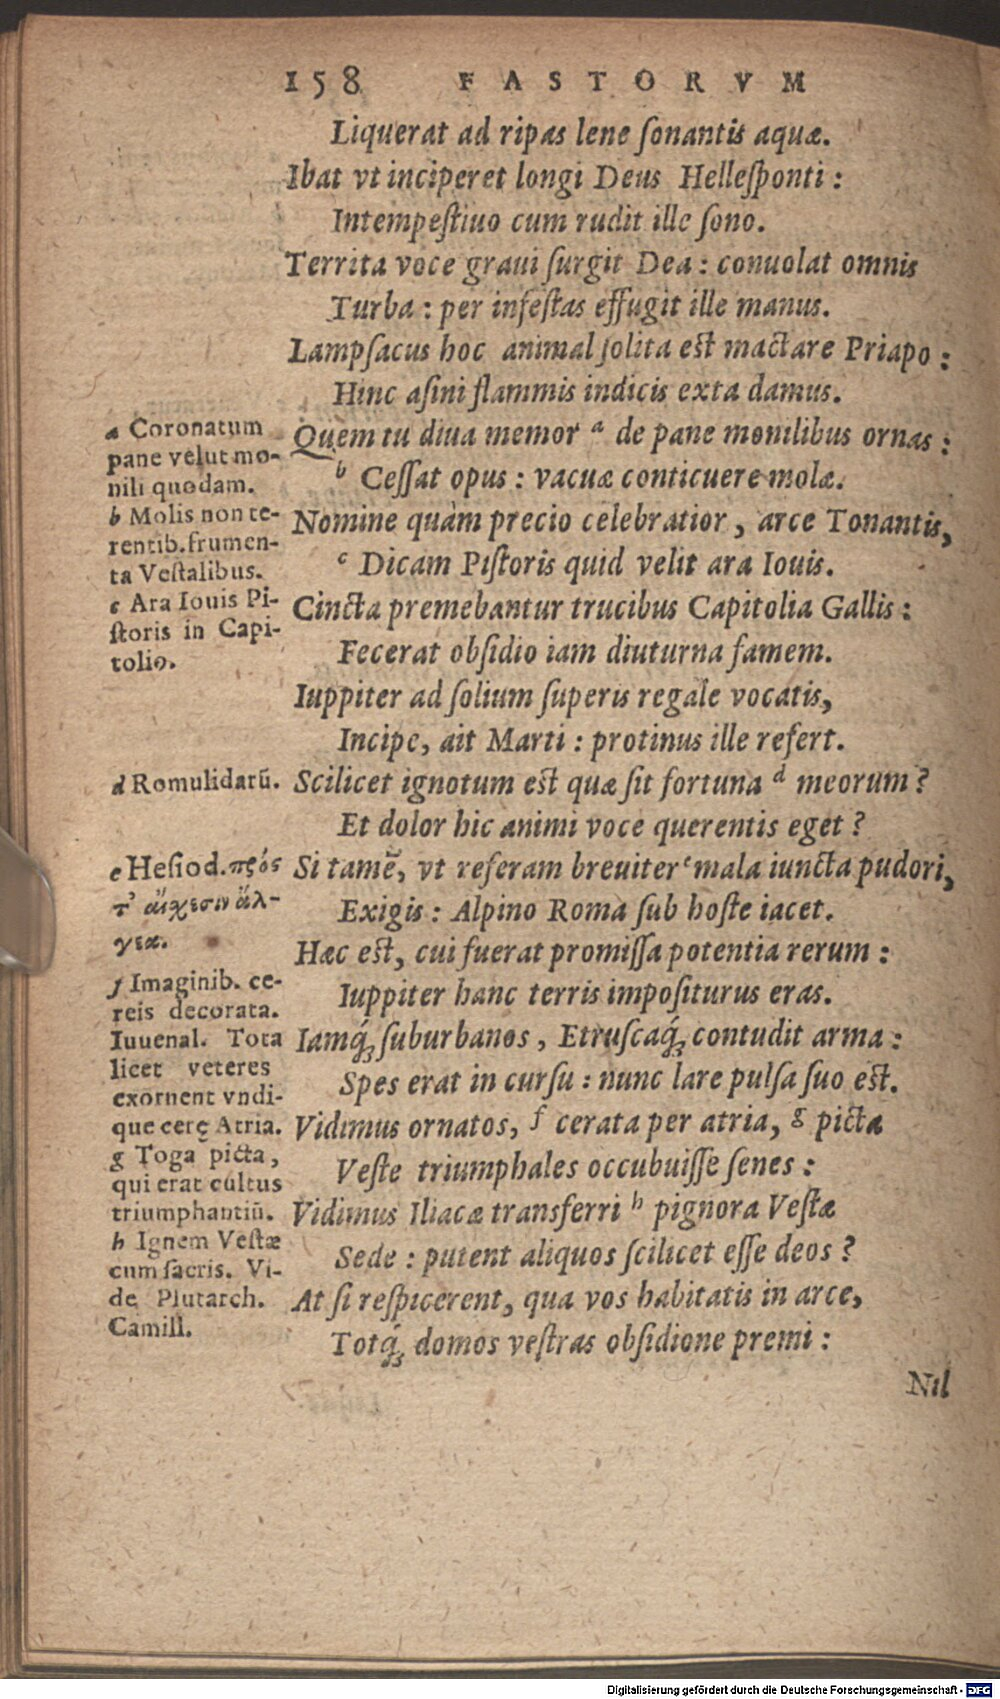 158 FASTORVM
Liquerat ad ripas lene ſonantis aquæ.
Ibat vt inciperet longi Deus Helleſponti:
Intempeſtiuo cum rudit ille ſono.
Territa voce graui ſurgit Dea: conuolat omnis
Turba: per infeſtas effugit ille manus.
Lampſacus hoc animal ſolita est mactare Priapo:
Hinc aſini flammis indicis exta damus.
Quem tu diua memor a de pane monilibus ornas:
b Ceſſat opus: vacuæ conticuere molæ.
Nomine quàm precio celebratior, arce Tonantis,
c Dicam Piſtoris quid velit ara Iouis.
Cincta premebantur trucibus Capitolia Gallis:
Fecerat obſidio iam diuturna famem.
Iuppiter ad ſolium ſuperis regale vocatis,
Incipe, ait Marti: protinus ille refert.
Scilicet ignotum est quæ ſit fortuna d meorum?
Et dolor hic animi voce querentis eget?
Si tamē, vt referam breuiter e mala iuncta pudori,
Exigis: Alpino Roma ſub hoſte iacet.
Hæc est, cui fuerat promiſſa potentia rerum:
Iuppiter hanc terris impoſiturus eras.
Iamq́; ſuburbanos, Etruſcaq́; contudit arma:
Spes erat in curſu: nunc lare pulſa ſuo est.
Vidimus ornatos, f cerata per atria, g picta
Veſte triumphales occubuiſſe ſenes:
Vidimus Iliacæ transferri h pignora Veſtæ
Sede: putent aliquos ſcilicet eſſe deos?
At ſi reſpicerent, qua vos habitatis in arce,
Totq́; domos veſtras obſidione premi:
Nil
a Coronatum
pane velut mo-
nili quodam.
b Molis non te-
rentib. frumen-
ta Veſtalibus.
c Ara Iouis Pi-
ſtoris in Capi-
tolio.
d Romulidarū.
e Heſiod. πρός
τ' αἴχεσιν ἄλ-
γεα.
f Imaginib. ce-
reis decorata.
Iuuenal. Tota
licet veteres
exornent vndi-
que cerę Atria.
g Toga picta,
qui erat cultus
triumphantiū.
h Ignem Veſtæ
cum ſacris. Vi-
de Plutarch.
Camill.
Digitalisierung gefördert durch die Deutsche Forschungsgemeinschaft - DFG